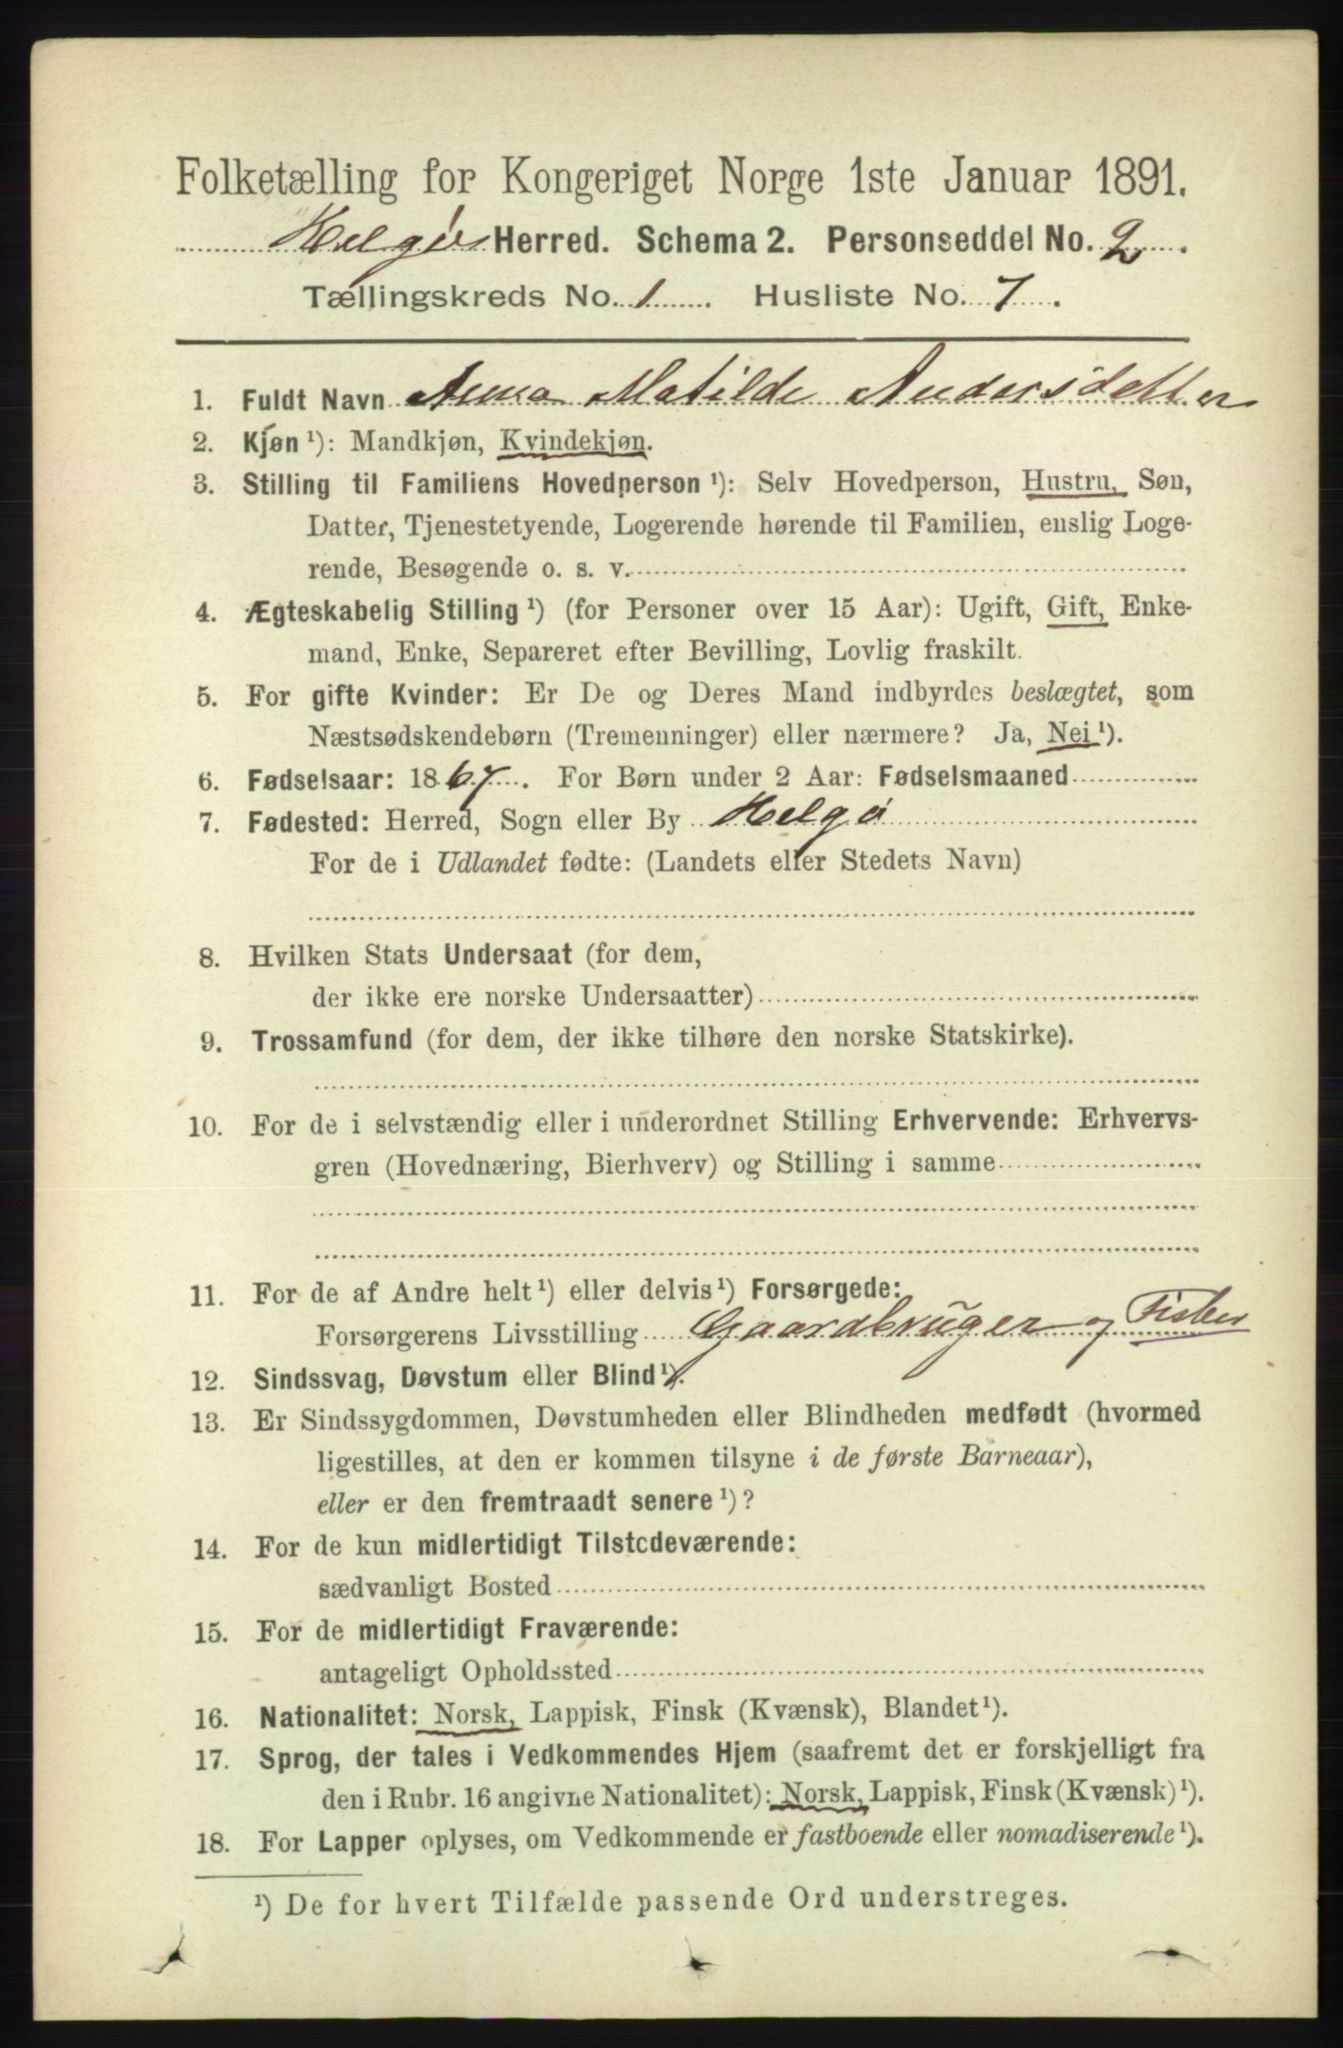 Folketælling for Kongeriget Norge 1ste Januar 1891.
Helgø Herred. Schema 2. Personseddel No. 2.
Tællingskreds No. 1. Husliste No. 7.
1. Fuldt Navn Anna Matilde Andersdatter
2. Kjøn ¹): Mandkjøn, Kvindekjøn.
3. Stilling til Familiens Hovedperson ¹): Selv Hovedperson, Hustru, Søn,
Datter, Tjenestetyende, Logerende hørende til Familien, enslig Loge-
rende, Besøgende o. s. v.
4. Ægteskabelig Stilling ¹) (for Personer over 15 Aar): Ugift, Gift, Enke-
mand, Enke, Separeret efter Bevilling, Lovlig fraskilt.
5. For gifte Kvinder: Er De og Deres Mand indbyrdes beslægtet, som
Næstsødskendebørn (Tremenninger) eller nærmere? Ja, Nei ¹).
6. Fødselsaar: 1867. For Børn under 2 Aar: Fødselsmaaned
7. Fødested: Herred, Sogn eller By Helgø
For de i Udlandet fødte: (Landets eller Stedets Navn)
8. Hvilken Stats Undersaat (for dem,
der ikke ere norske Undersaatter)
9. Trossamfund (for dem, der ikke tilhøre den norske Statskirke).
10. For de i selvstændig eller i underordnet Stilling Erhvervende: Erhvervs-
gren (Hovednæring, Bierhverv) og Stilling i samme
11. For de af Andre helt ¹) eller delvis ¹) Forsørgede:
Forsørgerens Livsstilling Gaardbruger og Fisker
12. Sindssvag, Døvstum eller Blind ¹).
13. Er Sindssygdommen, Døvstumheden eller Blindheden medfødt (hvormed
ligestilles, at den er kommen tilsyne i de første Barneaar),
eller er den fremtraadt senere ¹)?
14. For de kun midlertidigt Tilstedeværende:
sædvanligt Bosted
15. For de midlertidigt Fraværende:
antageligt Opholdssted
16. Nationalitet: Norsk, Lappisk, Finsk (Kvænsk), Blandet ¹).
17. Sprog, der tales i Vedkommendes Hjem (saafremt det er forskjelligt fra
den i Rubr. 16 angivne Nationalitet): Norsk, Lappisk, Finsk (Kvænsk) ¹).
18. For Lapper oplyses, om Vedkommende er fastboende eller nomadiserende ¹).
¹) De for hvert Tilfælde passende Ord understreges.